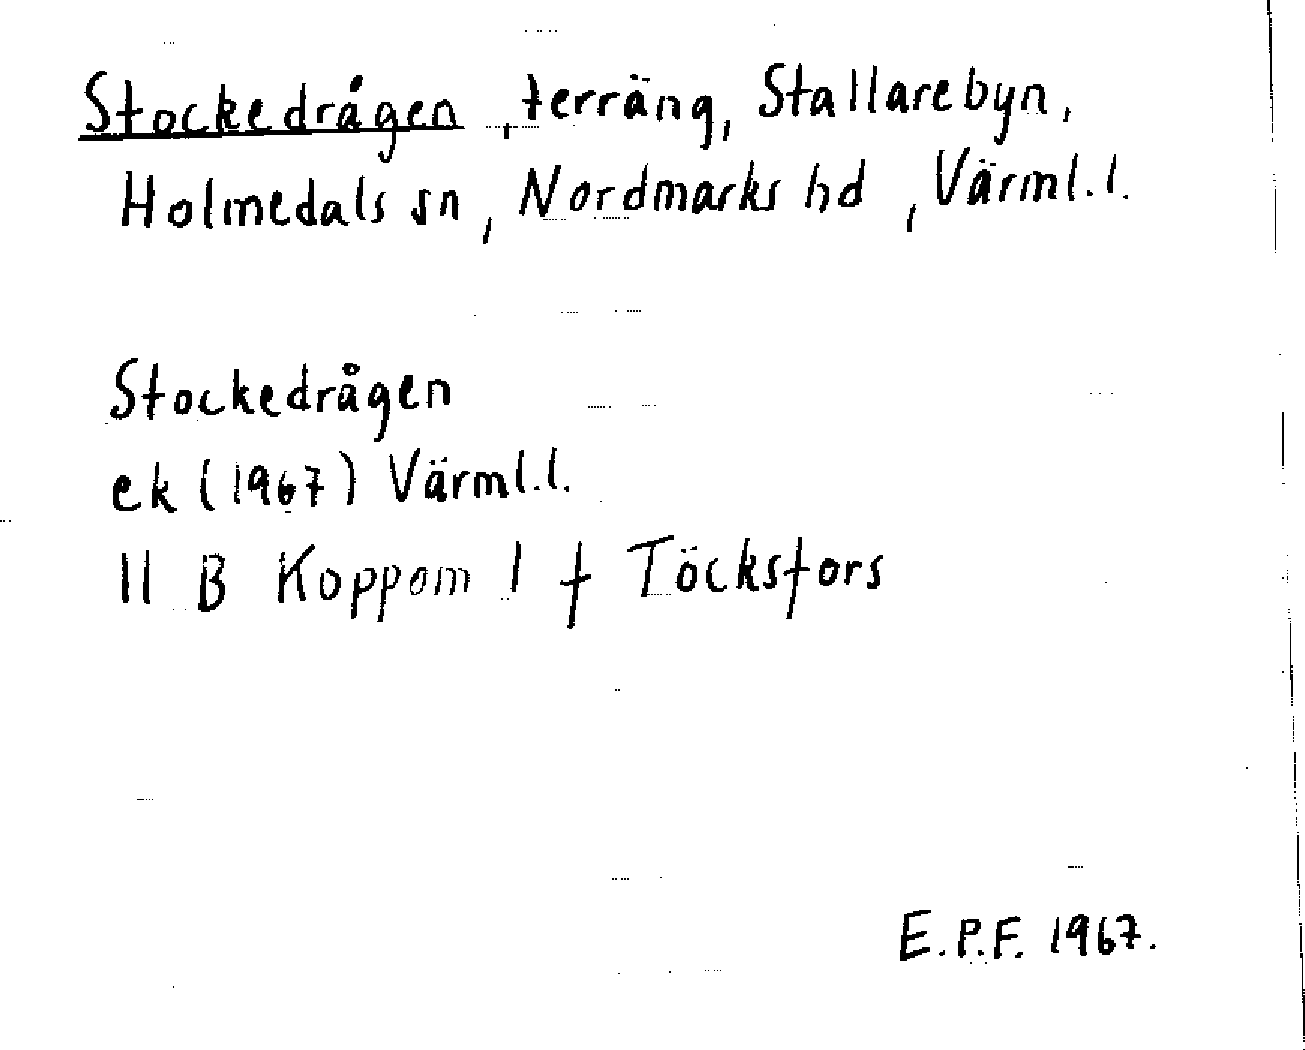 Stockedrågen, terräng, Stallarebyn,
Holmedals sn, Nordmarks hd, Värml.l.
Stockedrågen
ek (1967) Värml.l.
11 B Koppom 1 f Töcksfors
E.P.F. 1967.